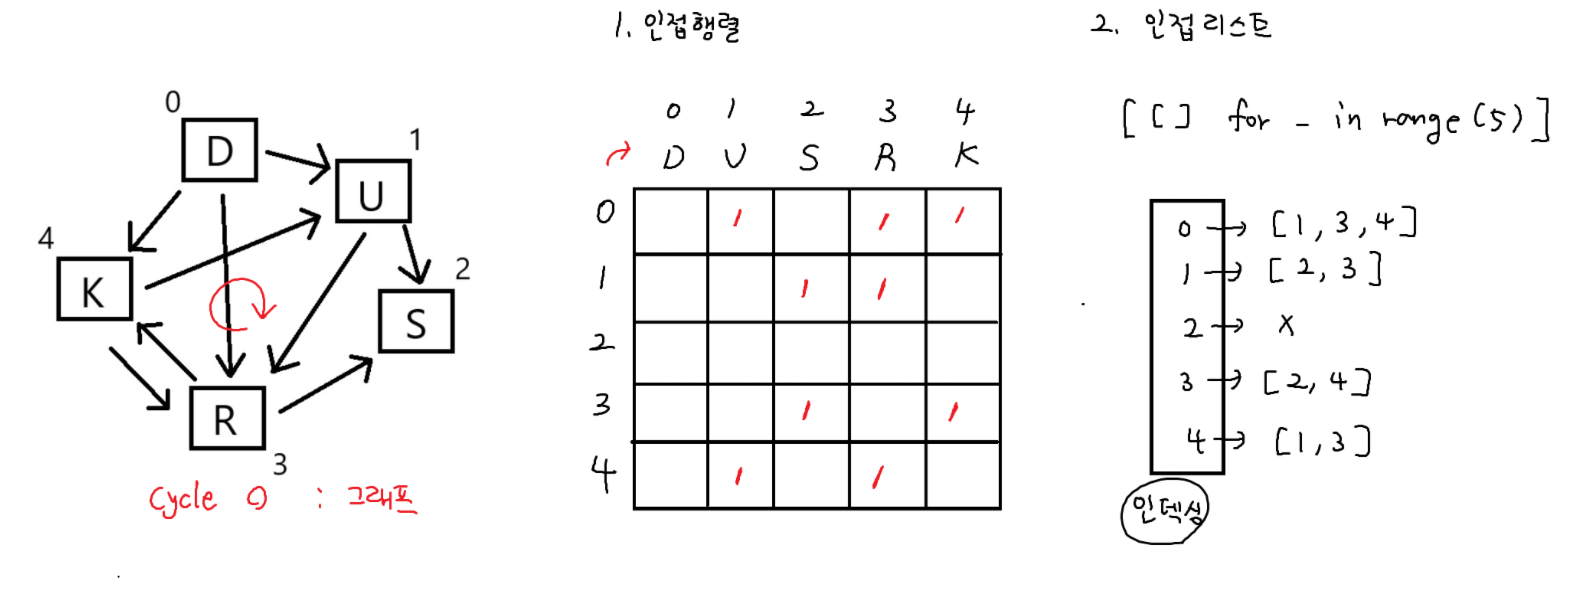 0
D
1
U
4
K
2
S
R
3
Cycle O : 그래프
1. 인접행렬
0 1 2 3 4
D U S R K
0 1 1 1
1 1 1
2
3 1 1
4 1 1
2. 인접리스트
[ [ ] for _ in range (5) ]
0 → [1, 3, 4]
1 → [2, 3]
2 → X
3 → [2, 4]
4 → [1, 3]
인덱싱